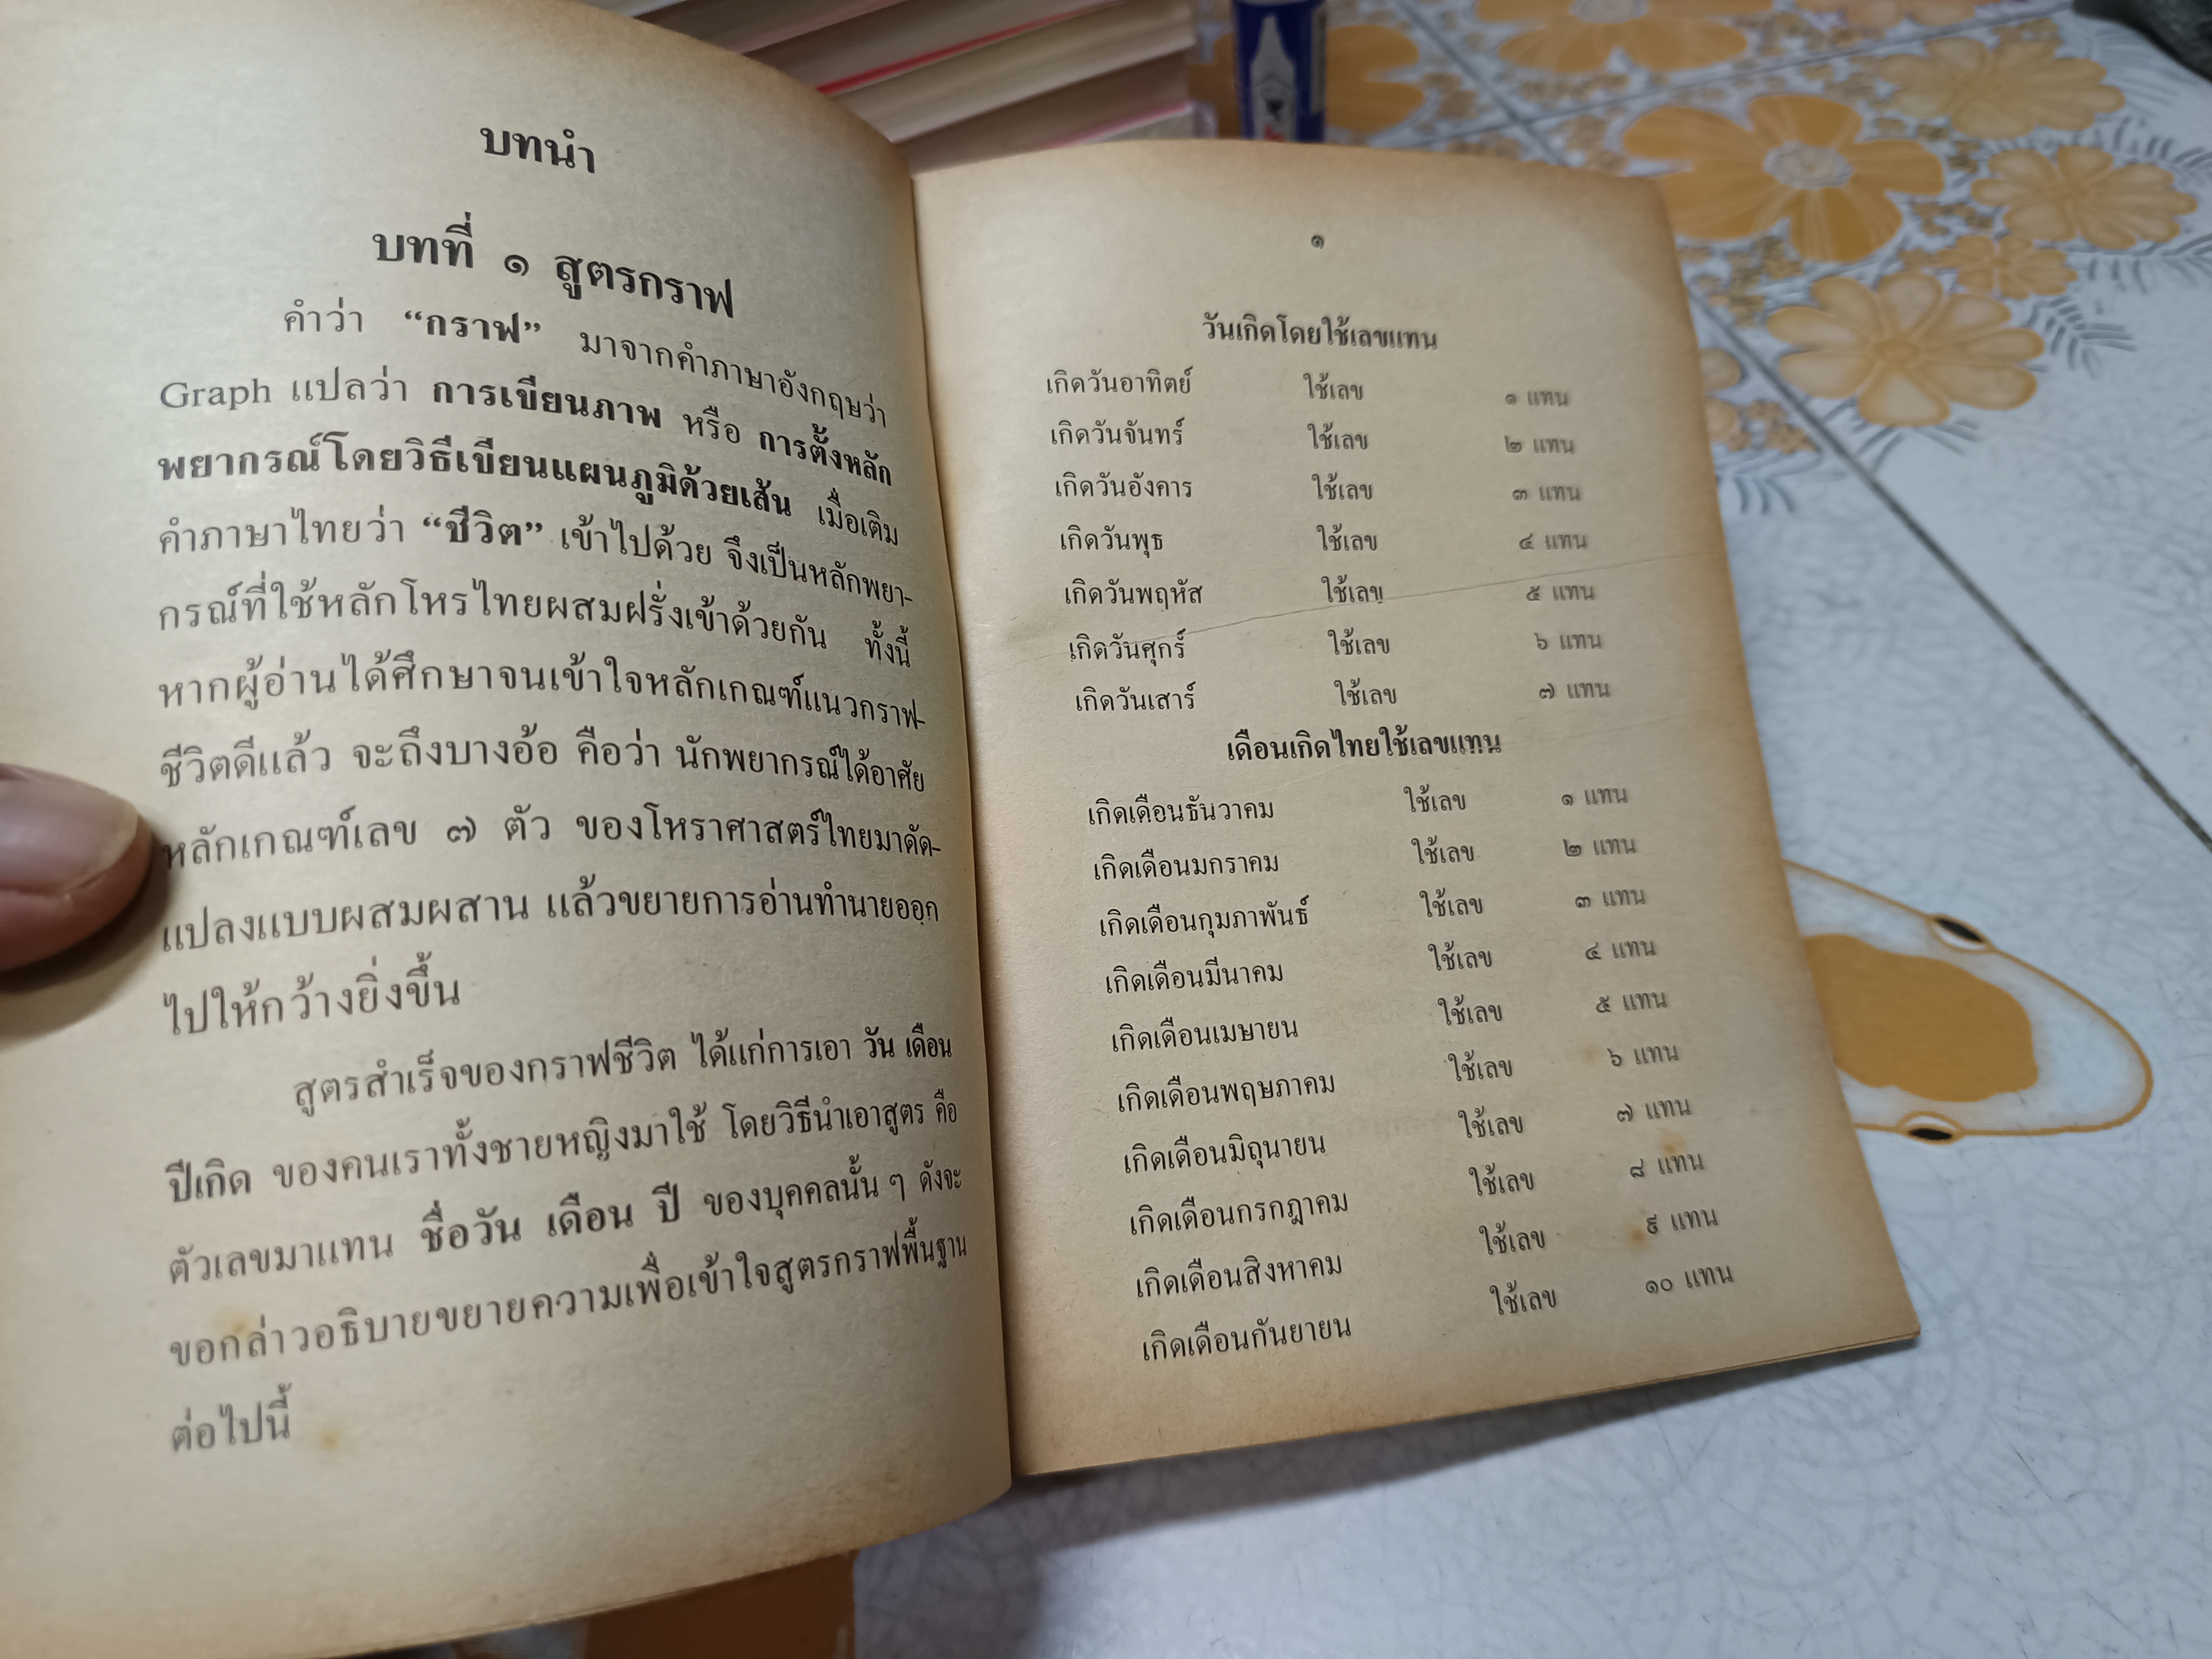 บทนำ
บทที่ ๑ สูตรกราฟ
คำว่า “กราฟ” มาจากคำภาษาอังกฤษว่า
Graph แปลว่า การเขียนภาพ หรือ การตั้งหลัก
พยากรณ์โดยวิธีเขียนแผนภูมิด้วยเส้น เมื่อเติม
คำภาษาไทยว่า “ชีวิต” เข้าไปด้วย จึงเป็นหลักพยา-
กรณ์ที่ใช้หลักโหรไทยผสมฝรั่งเข้าด้วยกัน ทั้งนี้
หากผู้อ่านได้ศึกษาจนเข้าใจหลักเกณฑ์แนวกราฟ-
ชีวิตดีแล้ว จะถึงบางอ้อ คือว่า นักพยากรณ์ได้อาศัย
หลักเกณฑ์เลข ๗ ตัว ของโหราศาสตร์ไทยมาดัด-
แปลงแบบผสมผสาน แล้วขยายการอ่านทำนายออก
ไปให้กว้างยิ่งขึ้น
สูตรสำเร็จของกราฟชีวิต ได้แก่การเอา วัน เดือน
ปีเกิด ของคนเราทั้งชายหญิงมาใช้ โดยวิธีนำเอาสูตร คือ
ตัวเลขมาแทน ชื่อวัน เดือน ปี ของบุคคลนั้น ๆ ดังจะ
ขอกล่าวอธิบายขยายความเพื่อเข้าใจสูตรกราฟพื้นฐาน
ต่อไปนี้
๑
วันเกิดโดยใช้เลขแทน
เกิดวันอาทิตย์ ใช้เลข ๑ แทน
เกิดวันจันทร์ ใช้เลข ๒ แทน
เกิดวันอังคาร ใช้เลข ๓ แทน
เกิดวันพุธ ใช้เลข ๔ แทน
เกิดวันพฤหัส ใช้เลข ๕ แทน
เกิดวันศุกร์ ใช้เลข ๖ แทน
เกิดวันเสาร์ ใช้เลข ๗ แทน
เดือนเกิดไทยใช้เลขแทน
เกิดเดือนธันวาคม ใช้เลข ๑ แทน
เกิดเดือนมกราคม ใช้เลข ๒ แทน
เกิดเดือนกุมภาพันธ์ ใช้เลข ๓ แทน
เกิดเดือนมีนาคม ใช้เลข ๔ แทน
เกิดเดือนเมษายน ใช้เลข ๕ แทน
เกิดเดือนพฤษภาคม ใช้เลข ๖ แทน
เกิดเดือนมิถุนายน ใช้เลข ๗ แทน
เกิดเดือนกรกฎาคม ใช้เลข ๘ แทน
เกิดเดือนสิงหาคม ใช้เลข ๙ แทน
เกิดเดือนกันยายน ใช้เลข ๑๐ แทน